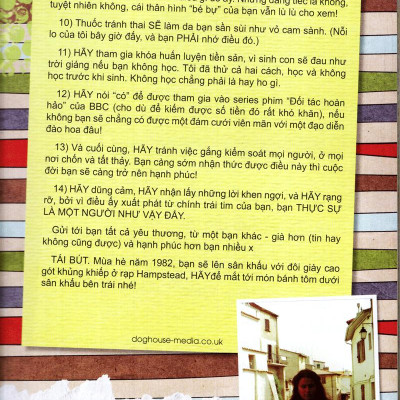 tuyệt nhiên không, cái thân hình "bé bự" của bạn vẫn lù lù cho xem!
10) Thuốc tránh thai SẼ làm da bạn sần sùi như vỏ cam sành. (Nỗi
lo của tôi bây giờ đấy, và bạn PHẢI nhớ điều đó.)
11) HÃY tham gia khóa huấn luyện tiền sản, vì sinh con sẽ đau như
trời giáng nếu bạn không học. Tôi đã thử cả hai cách, học và không
học trước khi sinh. Không học chẳng phải là hay ho gì.
12) HÃY nói "có" để được tham gia vào series phim "Đối tác hoàn
hảo" của BBC (cho dù để kiếm được số tiền đó rất khó khăn), nếu
không bạn sẽ chẳng có được một đám cưới viên mãn với một đạo diễn
đào hoa đâu!
13) Và cuối cùng, HÃY tránh việc gắng kiểm soát mọi người, ở mọi
nơi chốn và tất thảy. Bạn càng sớm nhận thức được điều này thì cuộc
đời bạn sẽ càng trở nên hạnh phúc!
14) HÃY dũng cảm, HÃY nhận lấy những lời khen ngợi, và HÃY rạng
rỡ, bởi vì điều ấy xuất phát từ chính trái tim của bạn, bạn THỰC SỰ
LÀ MỘT NGƯỜI NHƯ VẬY ĐẤY.
Gửi tới bạn tất cả yêu thương, từ một bạn khác - già hơn (tin hay
không cũng được) và hạnh phúc hơn bạn nhiều x
TÁI BÚT. Mùa hè năm 1982, bạn sẽ lên sân khấu với đôi giày cao
gót khủng khiếp ở rạp Hampstead, HÃYđể mắt tới món bánh tôm dưới
sân khấu bên trái nhé!
doghouse-media.co.uk